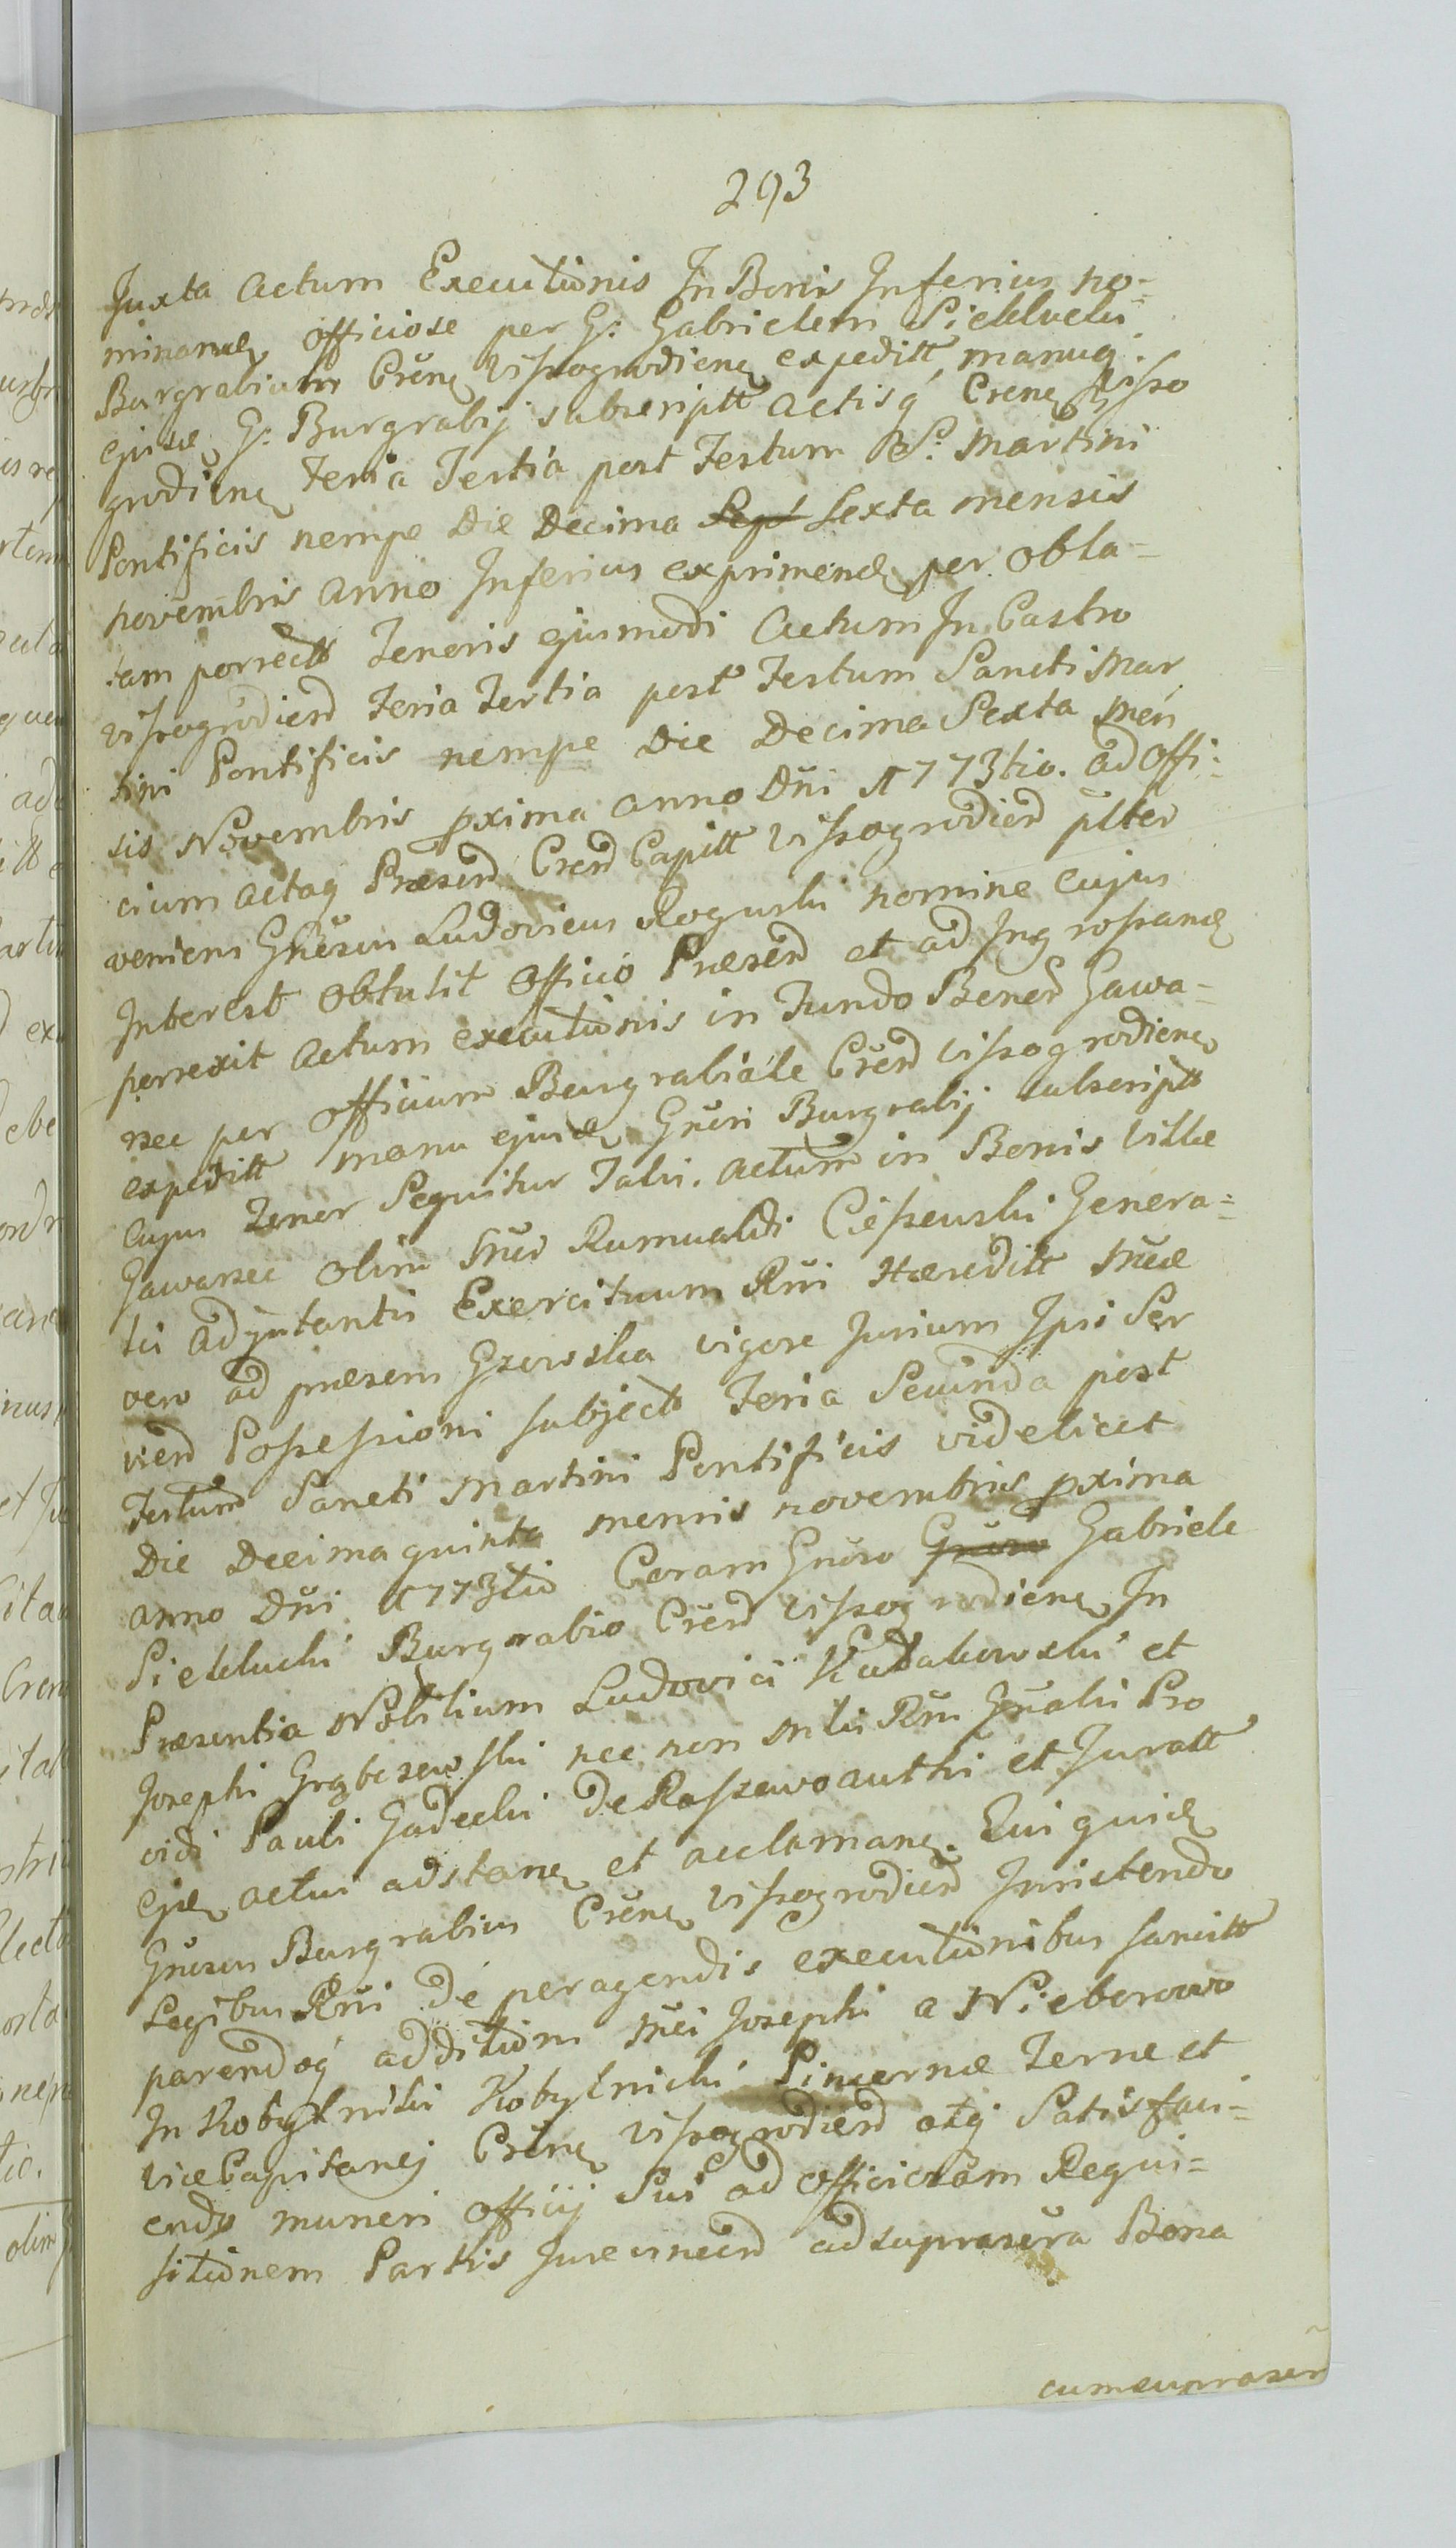 293
Juxta Actum Executionis In Bonis Inferius no=
minand officiose per G: Gabrielem Piekłucki
Burgrabium Crenẽ Vissogrodienẽ expeditt, manuq
ejusd G: Burgrabij subscriptt Actisq Crenẽ Visso
grodienẽ Feria Tertia post Festum S: Martini
Pontificis nempe Die Decima Sept Sexta mensis
Novembris Anno Inferius exprimend per obla=
tam porrectt Tenoris ejusmodi Actum In Castro
Vissogrodien Feria Tertia post Festum Sancti Mar
tini Pontificis nempe Die Decima Sexta Men
sis Novembris pxima Anno Dñi 1773tio. Ad Offi:
cium Actaq Præsen Cren Capitt Vissogrodien plter
veniens Gñesus Ludovicus Roguski nomine cujus
Interest obtulit Officio Præsen et ad Ingrossand
porrexit Actum executionis in Fundo Bonor Gawa=
rzec per Officium Burgrabiale Cren Vissogrodienẽ
expeditt manu ejusd Gñesi Burgrabij subscriptt
Cujus Tenor Sequitur Talis. Actum in Bonis Villæ
Gawarzec olim Mñci Rumualdi Ciessewski Genera=
lis Adjutantis Exercituum Rñi Hæreditt Mñcæ
vero ad præsens Gzowska vigore Jurium Ipsi Ser
vien Possessioni subjectt Feria Secunda post
Festum Sancti Martini Pontificis videlicet
Die Decima quinta mensis novembris pxima
Anno Dñi 1773tio Coram Gñoso Gñoso Gabriele
Piekłucki Burgrabio Cren Vissogrodienẽ In
Præsentia Nobilium Ludovici Kudakowski et
Josephi Grąbczewski nec non Mtri Rñi Gñalis Pro
vidi Pauli Gadecki De Rasszewo authi et Juratt
ejsd actui adstanẽ et acclamanẽ. Qui quid
Gñesus Burgrabius Crenẽ Vissogrodien Innitendo
Legibus Rñi De peragendis executionibus sancitt
parendoq additioni Mñci Josephi a Nieborowo
In Kobylniki Kobylnicki Pincernæ Terræ et
Vice Capitanej Crenẽ Vissogrodien atq Satisfaci=
endo muneri officij Sui ad officiosam Requi=
sitionem Partis Jurevincen ad suprascra Bona
cum suprascr